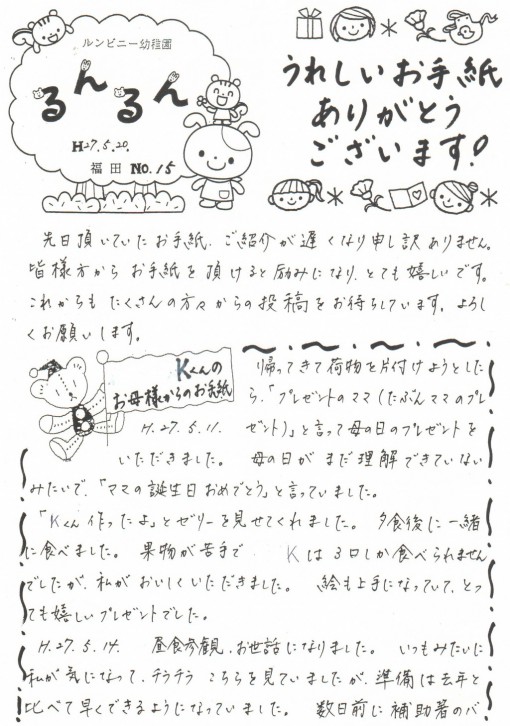 ルンビニー幼稚園
るんるん
H27.5.20.
福田 NO.15
うれしいお手紙
ありがとう
ございます!
先日頂いていたお手紙、ご紹介が遅くなり申し訳ありません。
皆様方からお手紙を頂けると励みになり、とても嬉しいです。
これからもたくさんの方々からの投稿をお待ちしています。よろし
くお願いします。
Kくんの
お母様からのお手紙
H.27.5.11.
帰ってきて荷物を片付けようとした
ら、「プレゼントのママ(たぶんママのプレ
ゼント)」と言って母の日のプレゼントを
いただきました。 母の日がまだ理解できていない
みたいで、「ママの誕生日おめでとう」と言っていました。
「Kくん作ったよ」とゼリーを見せてくれました。 夕食後に一緒
に食べました。 果物が苦手で Kは3口しか食べられません
でしたが、私がおいしくいただきました。 絵も上手になっていて、とっ
ても嬉しいプレゼントでした。
H.27.5.14. 昼食参観、お世話になりました。 いつもみたいに
私が気になって、チラチラこちらを見ていましたが、準備は去年と
比べて早くできるようになっていました。 数日前に補助箸のバ